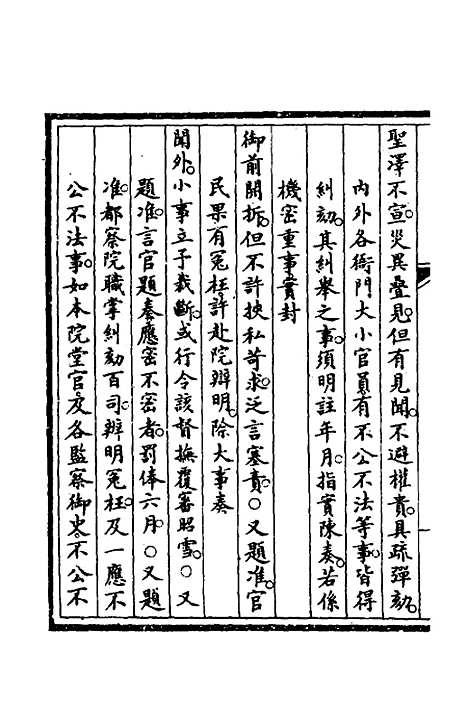 聖澤不宣。災異叠見。但有見聞。不避權貴。具疏彈劾。
內外各衙門大小官員有不公不法等事。皆得
糾劾。其糾舉之事。須明註年月。指實陳奏。若係
機密重事。實封
御前開拆。但不許挾私苛求。泛言塞責。○又題准。官
民果有冤枉。許赴院辦明。除大事奏
聞外。小事立予裁斷。或行令該督撫覆審昭雪。○又
題准。言官題奏應密不密者。罰俸六月。○又題
准。都察院職掌糾劾百司。辦明冤枉。及一應不
公不法事。如本院堂官及各監察御史。不公不